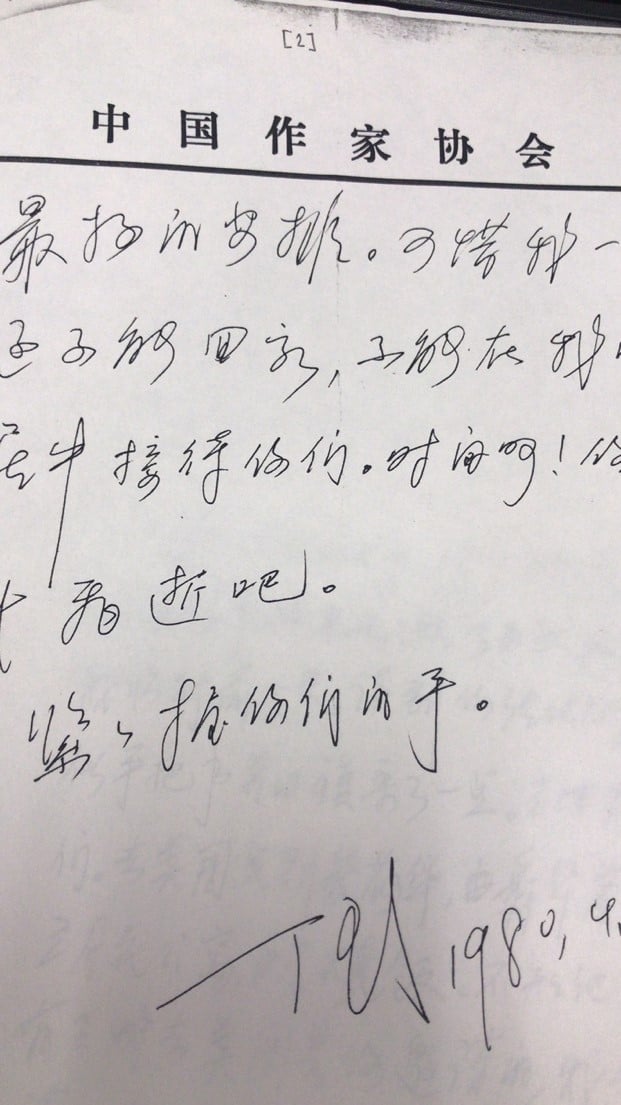 [2]
中国作家协会
最好的安排。可惜我一
还不能回家，不能在我
中接待你们。时间啊！你
看逝吧。
紧紧握你们的手。
丁玲 1980,4.